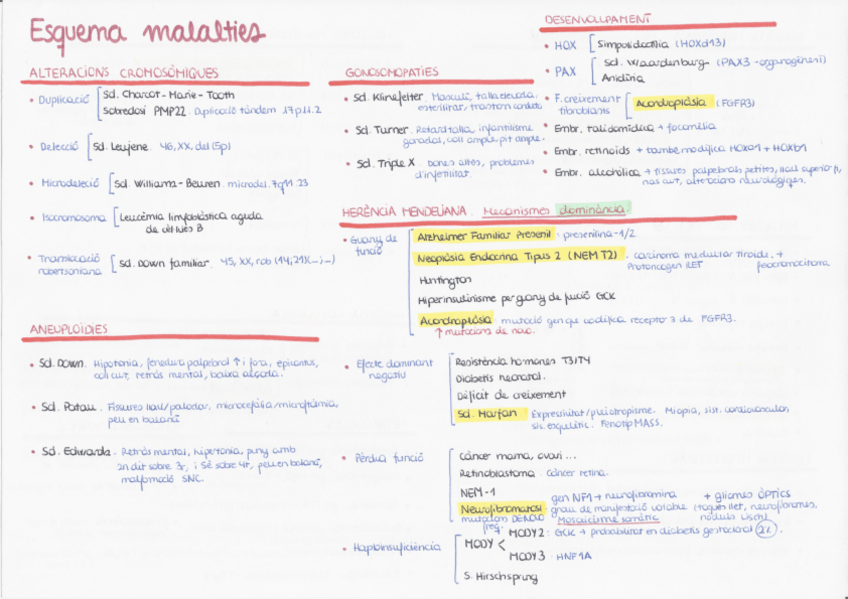 Esquema malalties
ALTERACIONS CROMOSÒMIQUES
• Duplicació
Sd. Charcot-Marie-Tooth
Sobredosi PMP22. Duplicació tàndem 17p11.2
• Delecció
Sd. Lejeune. 46, XX, del(5p)
• Microdeleció
Sd. Williams-Beuren. microdel. 7q11.23
• Isocromosoma
Leucèmia limfoblàstica aguda
de cèl·lules B
• Translocació
robertsoniana
Sd. Down familiar. 45, XX, rob(14;21)(...;...)
ANEUPLOÏDIES
• Sd. Down. Hipotonia, fenedura palpebral ↑ i fora, epicantus,
coll curt, retràs mental, baixa alçada.
• Sd. Patau. Fissures llavi/paladar. microcefàlia/microftàlmia,
peu en balancí
• Sd. Edwards. Retràs mental, hipertonia, puny amb
2n dit sobre 3r, i 5è sobre 4r, peu en balancí,
malformació SNC.
GONOSOMOPATIES
• Sd. Klinefelter. Masculí, talla elevada,
esterilitat, trastorn conducta
• Sd. Turner. Retard talla, infantilisme
gonades, coll ample, pit ample.
• Sd. Triple X dones altes, problemes
d'infertilitat.
DESENVOLUPAMENT
• HOX
Simpolidactília (HOXd13)
• PAX
Sd. Waardenburg (PAX3-organogènesi)
Anirídia
• F. creixement
fibroblasts
Acondroplàsia (FGFR3)
• Embr. talidomídica → focomèlia
• Embr. retinoids → també modifica HOXa1 + HOXb1
• Embr. alcohòlica → fissures palpebrals petites, llavi superior fi,
nas curt, alteracions neurològiques.
HERÈNCIA MENDELIANA. Mecanismes dominància
• Guany de
funció
Alzheimer Familiar Presenil. presenilina-1/2
Neoplàsia Endocrina Tipus 2 (NEM T2). carcinoma medular tiroide. +
Protoncogen RET feocromocitoma
Huntington
Hiperinsulinisme per guany de funció GCK
Acondroplàsia mutació gen que codifica receptor 3 de FGFR3.
↑ mutacions de novo.
• Efecte dominant
negatiu
Resistència hormones T3/T4
Diabetis neonatal.
Dèficit de creixement
Sd. Marfan Expressivitat/pleiotropisme. Miopia, sist. cardiovascular,
sis. esquelític. Fenotip MASS.
• Pèrdua funció
Càncer mama, ovari ...
Retinoblastoma. càncer retina.
NEM-1
Neurofibromatosi gen NF1 → neurofibromina + gliomes ÒPTICS
mutacions DE NOVO freq. grau de manifestació variable (taques llet, neurofibromes,
Mosaicisme somàtic nòduls Lisch)
• Haploinsuficiència
MODY < MODY2: GCK → probabilitat en diabetis gestacional 2x.
MODY3 · HNF1A
S. Hirschsprung